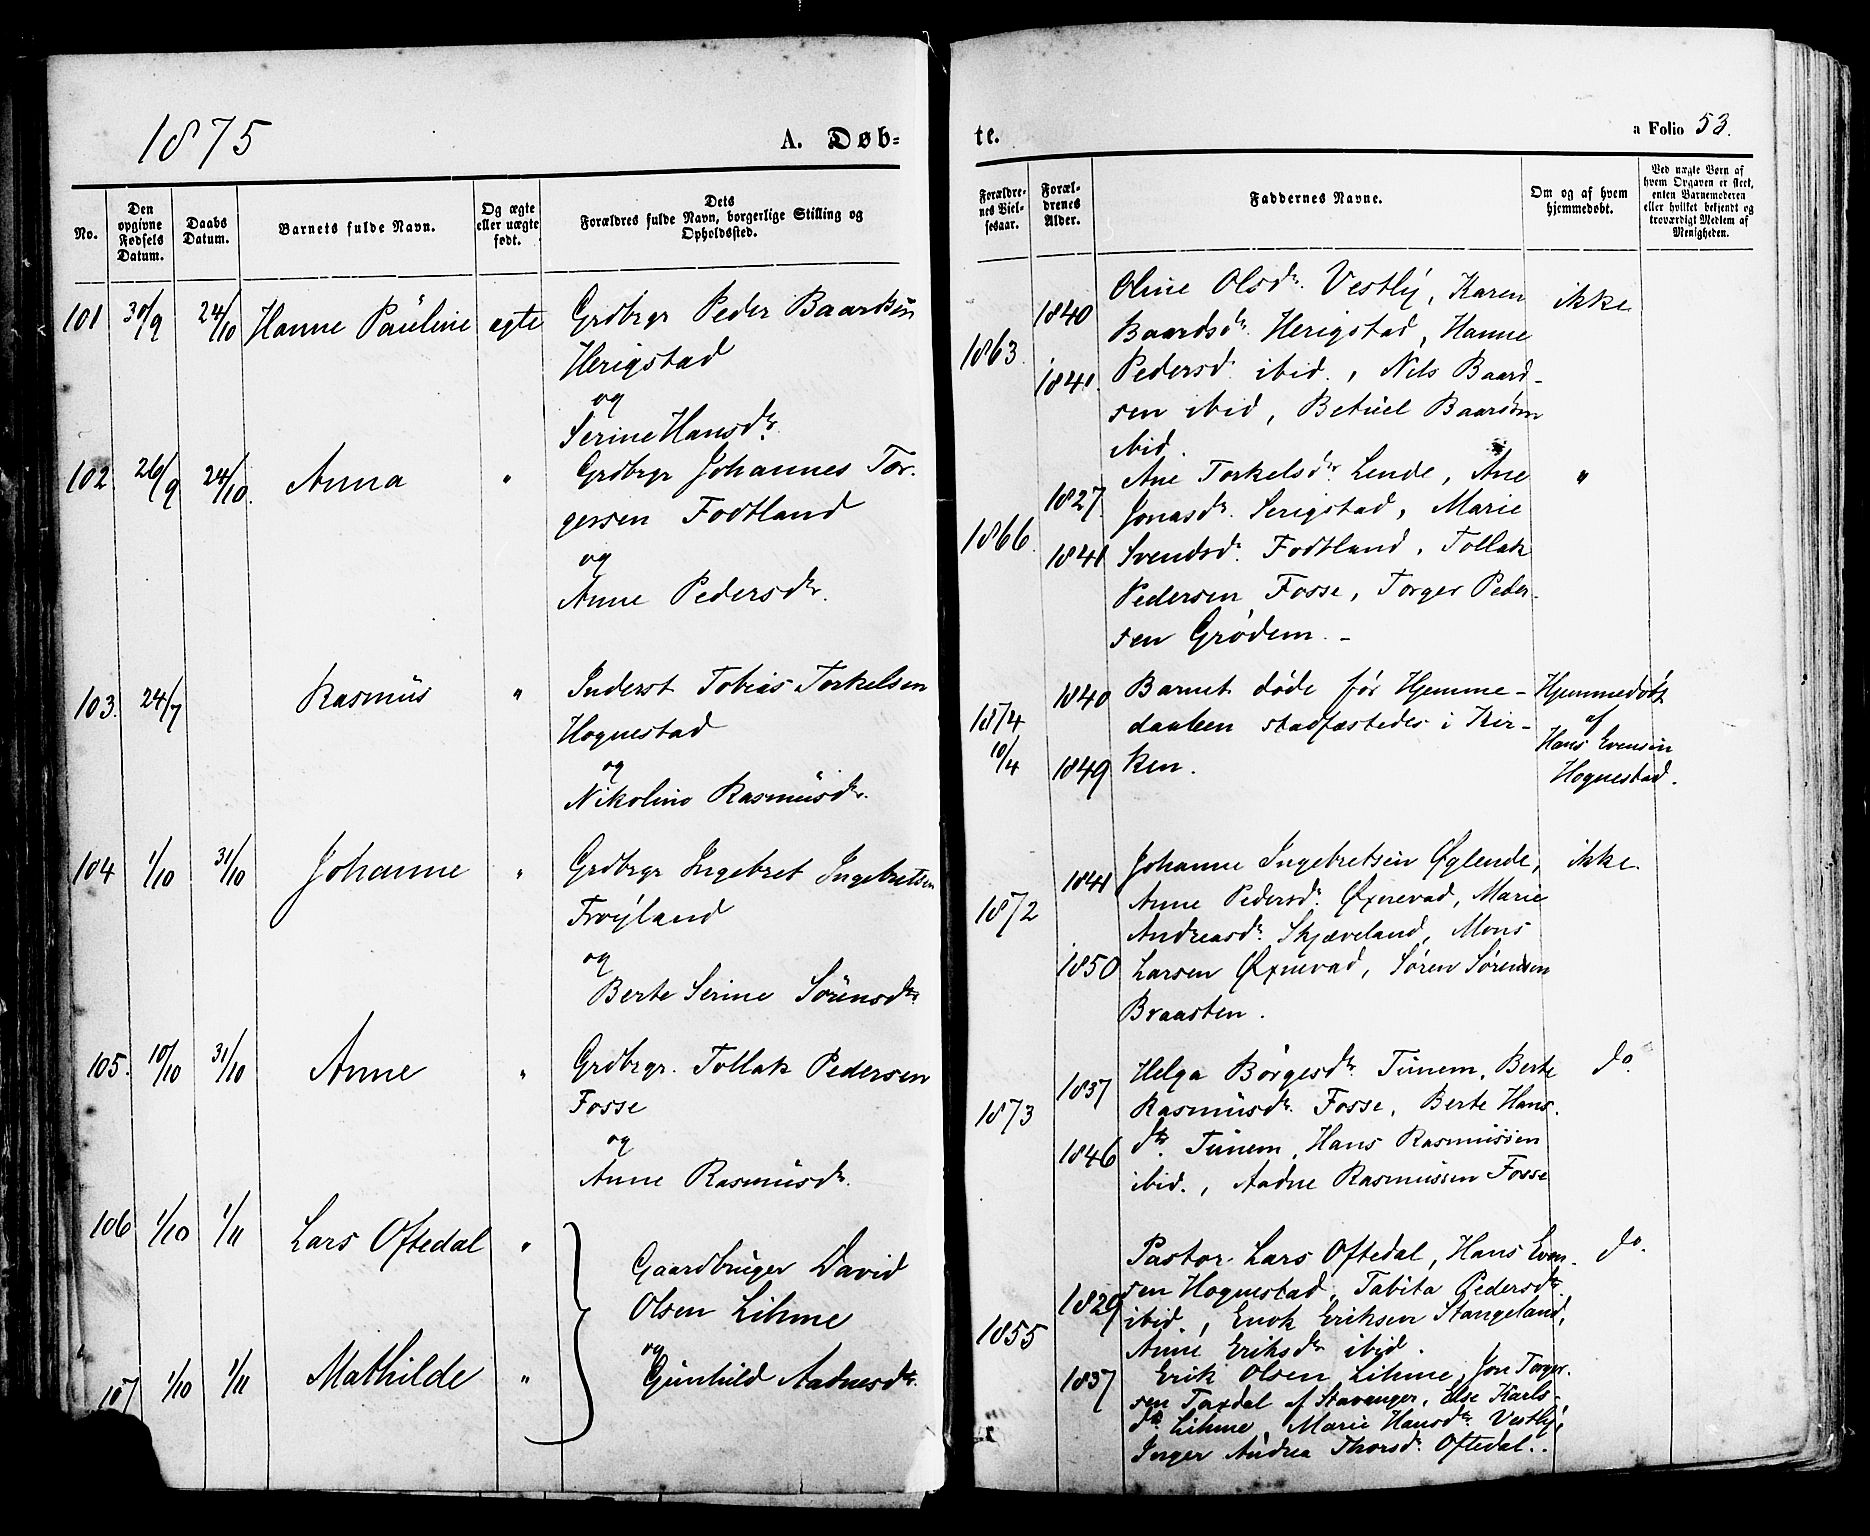 1875
A. Døb-
te.
a Folio 53.
No.
Den opgivne Fødsels Datum.
Daabs Datum.
Barnets fulde Navn.
Og ægte eller uægte født.
Dets Forældres fulde Navn, borgerlige Stilling og Opholdssted.
Forældrenes Vielsesaar.
Forældrenes Alder.
Faddernes Navne.
Om og af hvem hjemmedøbt.
Ved uægte Børn af hvem Opgaven er skeet, enten Barnemoderen eller hvilket bekjendt og troværdigt Medlem af Menigheden.
101 30/9 24/10 Hanne Pauline egte Grdbrgr Peder Baardsen
Herigstad
og
Serine Hansdr.
1863. 1840 1841.
Oline Olsdr. Vestly, Karen
Baardsdr. Herigstad, Hanne
Pedersd. ibid., Nils Baard-
sen ibid, Betuel Baardsen
ibid.
ikke
102 26/9 24/10. Anna " Grdbrgr Johannes Tor-
gersen Fodtland
og
Anne Pedersdr.
1866. 1827. 1841
Ane Torkelsdr. Lende, Ane
Jonasdr. Serigstad, Marie
Svendsdr. Fodtland, Tollak
Pedersen Fosse, Torger Peder-
sen Grødem. -
"
103. 24/7 Rasmus " Inderst Tobias Torkelsen
Hognestad
og
Nikoline Rasmusdr.
1874 10/4 1840 1849
Barnet døde før Hjemme-
daaben stadfæstedes i Kir-
ken.
Hjemmedøbt
af
Hans Evensen
Hognestad.
104 1/10 31/10 Johanne " Grdbrgr Ingebret Ingebretsen
Frøyland
og
Berte Serine Sörensdtr.
1872 1841 1850
Johanne Ingebretsen Øglende,
Anne Pedersdr. Øxnevad, Marie
Andreasdr. Skjæveland, Mons
Larsen Øxnevad, Søren Sørensen
Braasten.
ikke.
105. 10/10 31/10 Anne " Grdbrgr. Tollak Pedersen
Fosse
og
Anne Rasmusdr.
1873 1837 1846
Helga Børgesdr. Tunem, Berte
Rasmusdr. Fosse, Berte Hans-
dtr. Tunem, Hans Rasmussen
ibid., Aadne Rasmussen Fosse
do.
106 1/10 1/11 Lars Oftedal "
Gaardbruger David
Olsen Lihme
og
Gunhild Aadnesdtr.
1855 1829 1837
Pastor Lars Oftedal, Hans Even-
sen Hognestad, Tabita Pedersdtr.
ibid., Enok Eriksen Stangeland,
Anne Eriksdr ibid.
do.
107 1/10 1/11 Mathilde "
Erik Olsen Lihme, Jon Torger-
sen Taxdal af Stavanger, Else Karls-
dtr. Lihme, Marie Hansdr. Vestly,
Inger Andrea Thorsdr. Oftedal.